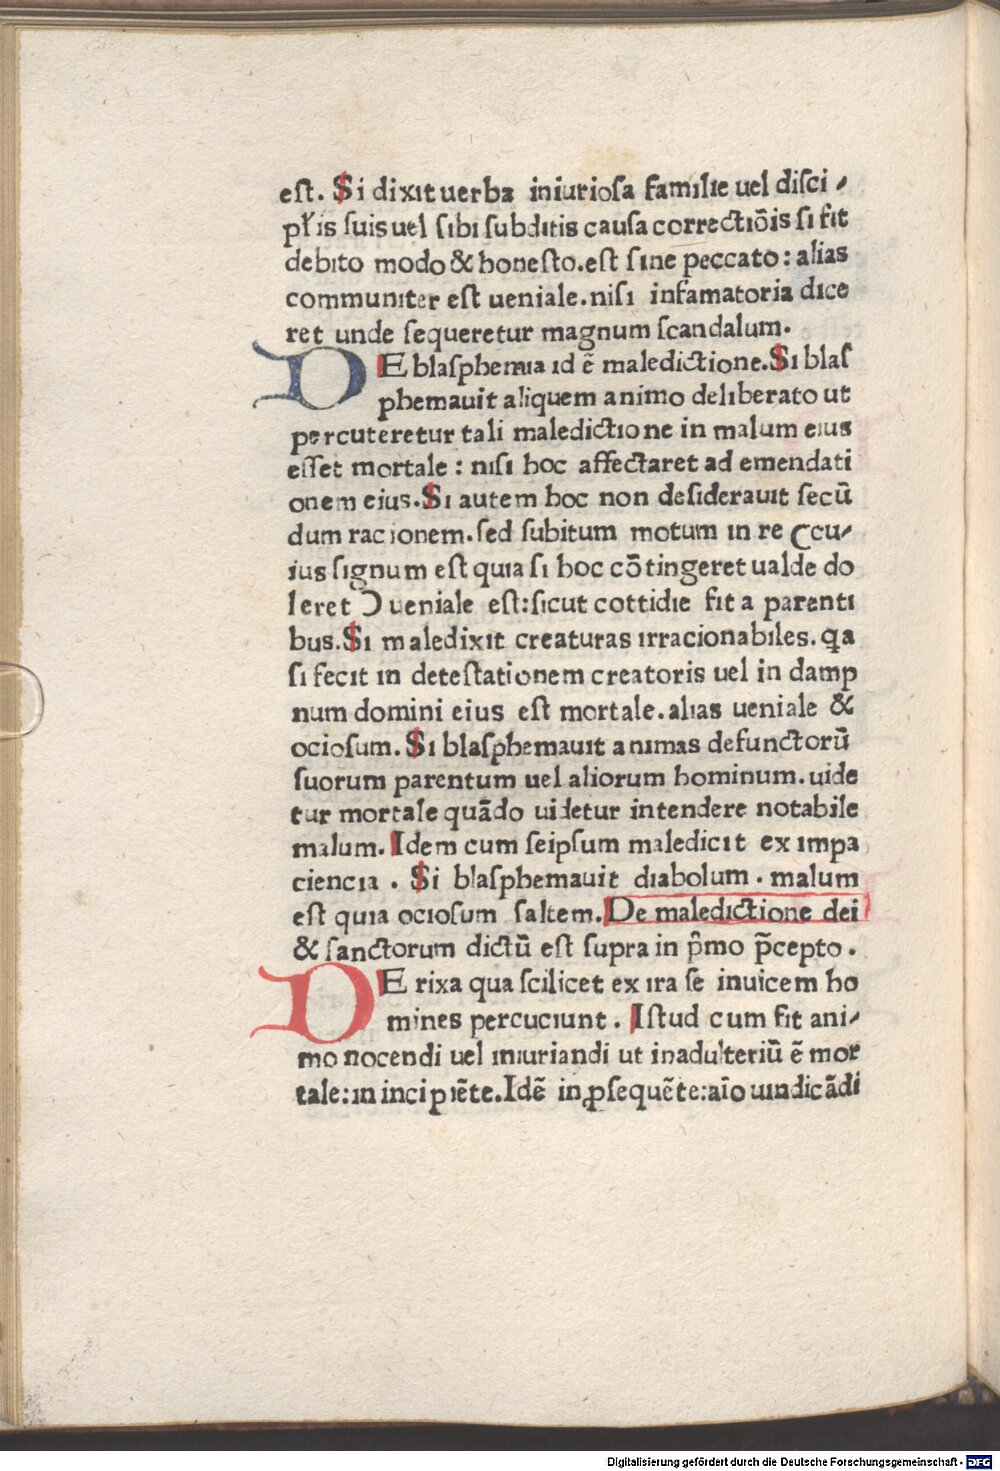 est. Si dixit uerba iniuriosa familie uel disci⸗
pl̄is suis uel sibi subditis causa correctiōis si fit
debito modo & honesto.est sine peccato: alias
communiter est ueniale.nisi infamatoria dice
ret unde sequeretur magnum scandalum.
DE blasphemia id ē maledictione.Si blas
phemauit aliquem animo deliberato ut
percuteretur tali maledictione in malum eius
esset mortale : nisi hoc affectaret ad emendati
onem eius.Si autem hoc non desiderauit secū
dum racionem.sed subitum motum in re (cu⸗
ius signum est quia si hoc cōtingeret ualde do
leret ) ueniale est:sicut cottidie fit a parenti
bus.Si maledixit creaturas irracionabiles.qa
si fecit in detestationem creatoris uel in damp
num domini eius est mortale.alias ueniale &
ociosum.Si blasphemauit animas defunctorū
suorum parentum uel aliorum hominum.uide
tur mortale quādo uidetur intendere notabile
malum.Idem cum seipsum maledicit ex impa
ciencia . Si blasphemauit diabolum . malum
est quia ociosum saltem.De maledictione dei
& sanctorum dictū est supra in p̄mo p̄cepto .
DE rixa qua scilicet ex ira se inuicem ho
mines percuciunt . Istud cum fit ani⸗
mo nocendi uel iniuriandi ut inadulteriū ē mor
tale:in incipiēte.Idē in ꝓsequēte:aīo uindicādi
Digitalisierung gefördert durch die Deutsche Forschungsgemeinschaft - DFG